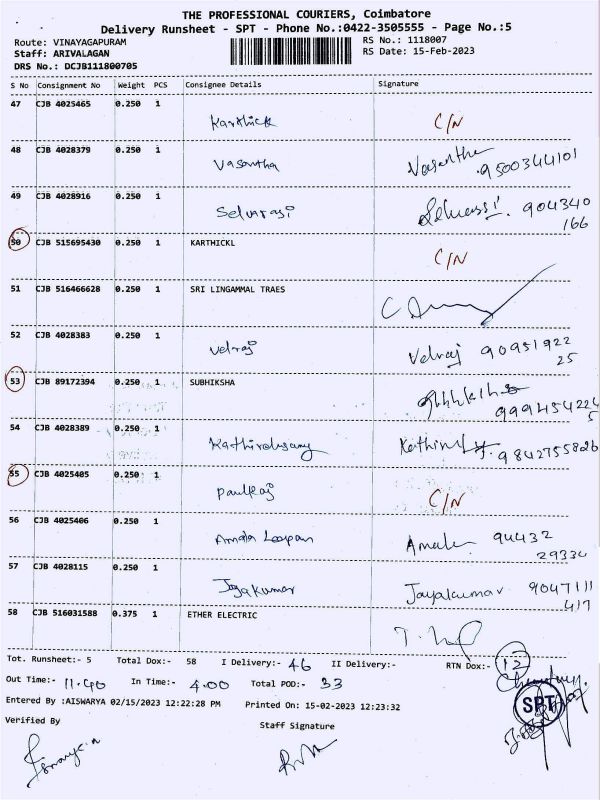 THE PROFESSIONAL COURIERS, Coimbatore
Delivery Runsheet - SPT - Phone No.:0422-3505555 - Page No.:5
Route: VINAYAGAPURAM RS No.: 1118007
Staff: ARIVALAGAN RS Date: 15-Feb-2023
DRS No.: DCJB111800705
S No Consignment No Weight PCS Consignee Details Signature
47 CJB 4025465 0.250 1
Karthick C/N
48 CJB 4028379 0.250 1
Vasantha Vasantha 9500344101
49 CJB 4028916 0.250 1
Selvaraj 904340
166
50 CJB 515695430 0.250 1 KARTHICKL
C/N
51 CJB 516466628 0.250 1 SRI LINGAMMAL TRAES
52 CJB 4028383 0.250 1
Velraj Velraj 90951922
25
53 CJB 89172394 0.250 1 SUBHIKSHA
999454224
5
54 CJB 4028389 0.250 1
9842755826
55 CJB 4025405 0.250 1
Paulraj C/N
56 CJB 4025406 0.250 1
Amala 94432
29334
57 CJB 4028115 0.250 1
Jayakumar Jayakumar 9047111
417
58 CJB 516031588 0.375 1 ETHER ELECTRIC
Tot. Runsheet:- 5 Total Dox:- 58 I Delivery:- 46 II Delivery:- RTN Dox:- 12
Out Time:- 11.40 In Time:- 4.00 Total POD:- 33
Entered By :AISWARYA 02/15/2023 12:22:28 PM Printed On: 15-02-2023 12:23:32
SPT
Verified By Staff Signature